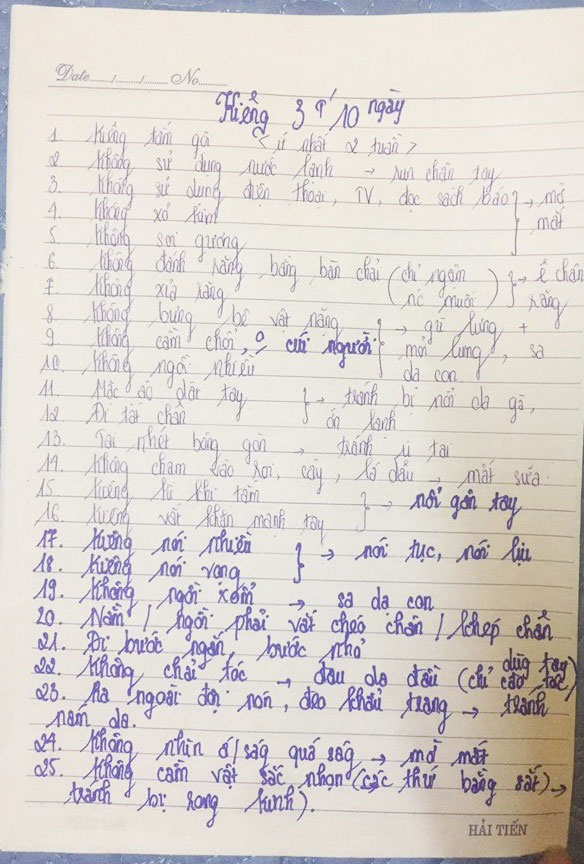 Date...../...../..... No.........
Kiêng 3 T' 10 ngày
1 Kiêng tắm gội <ít nhất 2 tuần>
2 Không sử dụng nước lạnh → run chân tay
3. Không sử dụng điện thoại, TV, đọc sách báo } → mờ mắt
4. Không xỏ kim
5. Không soi gương
6. Không đánh răng bằng bàn chải (chỉ ngậm nc muối) } → ê chân răng
7. Không xỉa răng
8. Không bưng bê vật nặng } → gù lưng +
9. Không cầm chổi, o cúi người mỏi lưng, sa
10. Không ngồi nhiều dạ con
11. Mặc áo dài tay } → tránh bị nổi da gà,
12 Đi tất chân ớn lạnh
13. Tai nhét bông gòn → tránh ù tai
14. Không chạm vào sơi, cây, lá dâu → mất sữa
15. Kiêng kì khi tắm } → nổi gân tay
16 Kiêng vắt khăn mạnh tay
17. Kiêng nói nhiều } → nói tục, nói lịu
18. Kiêng nói vọng
19. Không ngồi xổm → sa dạ con
20. Nằm / ngồi phải vắt chéo chân / khép chân
21. Đi bước ngắn, bước nhỏ
22. Không chải tóc → đau da đầu (chỉ cào tóc dùg tay)
23. Ra ngoài đội nón, đeo khẩu trang → tránh
nám da.
24. Không nhìn á/ság quá ság → mờ mắt
25. Không cầm vật sắc nhọn (các thứ bằng sắt) →
tránh bị rong kinh).
HẢI TIẾN